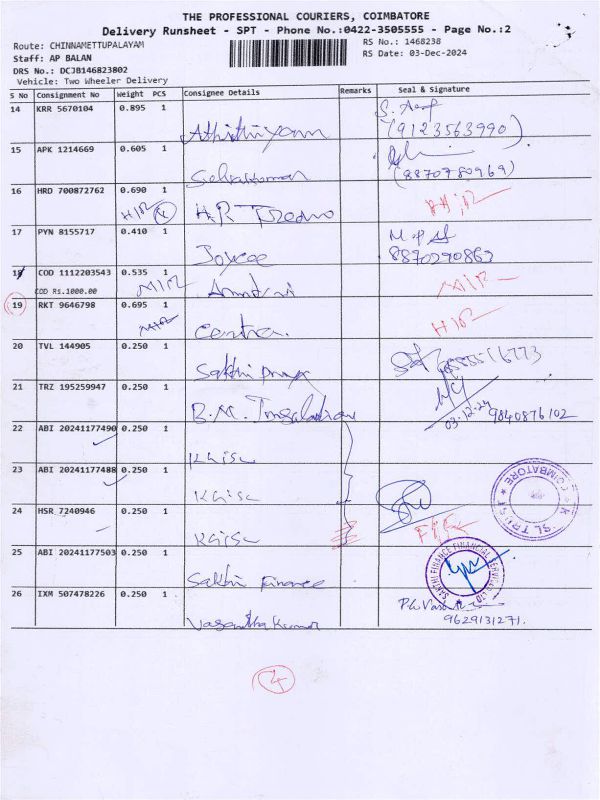 THE PROFESSIONAL COURIERS, COIMBATORE
Delivery Runsheet - SPT - Phone No.:0422-3505555 - Page No.:2
Route: CHINNAMETTUPALAYAM
RS No.: 1468238
Staff: AP BALAN
RS Date: 03-Dec-2024
DRS No.: DCJB146823802
Vehicle: Two Wheeler Delivery
S No Consignment No Weight PCS Consignee Details Remarks Seal & Signature
14 KRR 5670104 0.895 1
(9123563990)
15 APK 1214669 0.605 1
Selvakumar (8870780969)
16 HRD 700872762 0.690 1
17 PYN 8155717 0.410 1
Joycee 8870290862
18 COD 1112203543 0.535 1
COD Rs.1000.00
19 RKT 9646798 0.695 1
Centra.
20 TVL 144905 0.250 1
Sakthi Priya
21 TRZ 195259947 0.250 1
B.M. 03-12-24 9840876102
22 ABI 20241177490 0.250 1
23 ABI 20241177488 0.250 1
24 HSR 7240946 0.250 1
COIMBATORE
25 ABI 20241177503 0.250 1
Sakthi Finance
SAKTHI FINANCE FINANCIAL SERVICES LTD
26 IXM 507478226 0.250 1
Vasantha Kumar 9629131271.